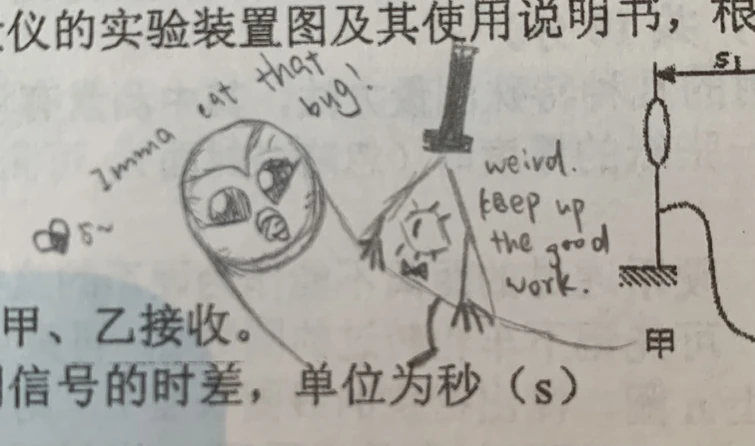 仪的实验装置图及其使用说明书，根
Imma eat that
bug!
S₁
weird.
keep up
the good
work.
甲、乙接收。
甲
信号的时差，单位为秒（s）